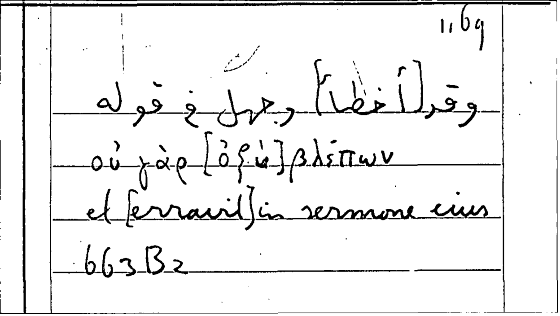 1,69
وقد [أخطأ] وجهل في قوله
οὐ γὰρ [ὀξὺ] βλέπων
et [erravit] in sermone eius
663B2